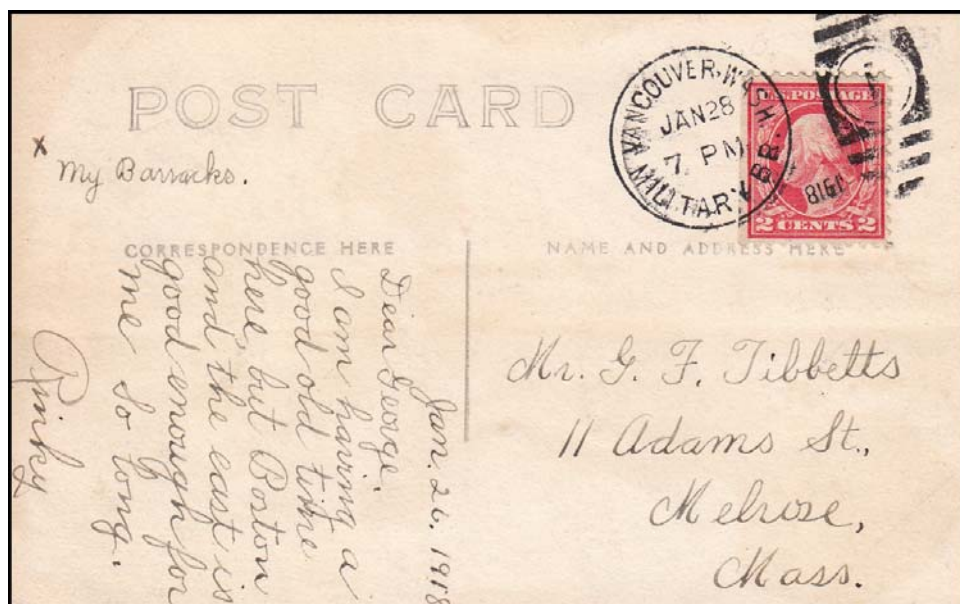 POST CARD
VANCOUVER, WASH.
JAN 28
7 PM
1918
MILITARY BR.
U.S. POSTAGE
2 CENTS 2
x
My Barracks.
CORRESPONDENCE HERE
NAME AND ADDRESS HERE
Jan. 26, 1918
Dear George.
I am having a
good old time
here but Boston
and the east is
good enough for
me So long.
Rinky
Mr. G. F. Tibbetts
11 Adams St.,
Melrose,
Mass.